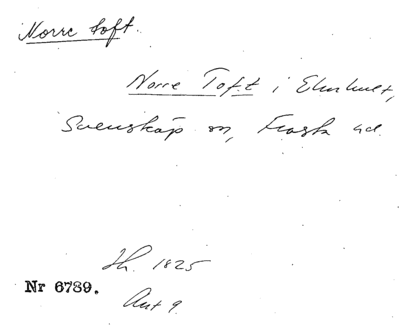 Norre toft.
Norre Toft i Elmhult,
Svenskäp sn, Frosta hd.
Sh. 1825
Nr 6789.
Ant 9.